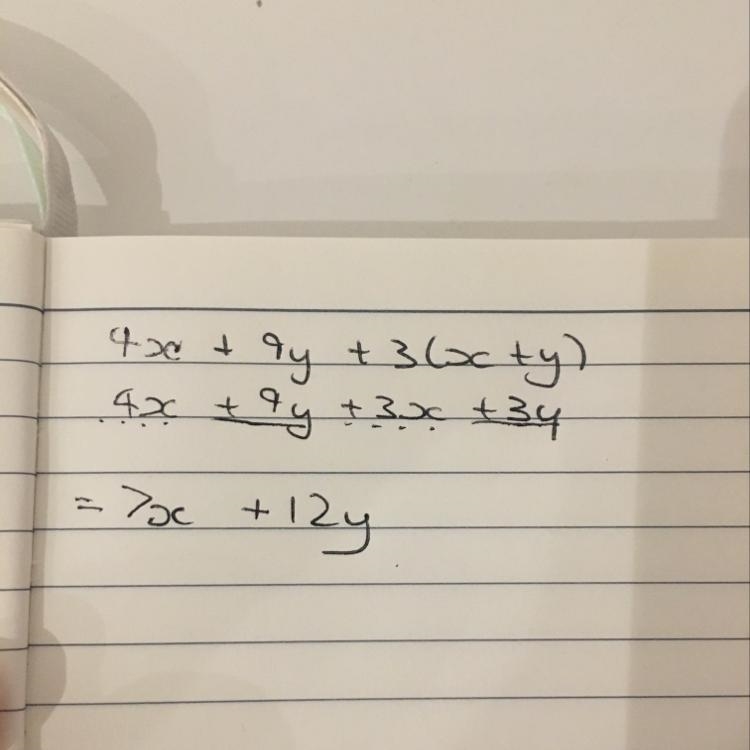 4x + 9y + 3(x + y)
4x + 9y + 3x + 3y
= 7x + 12y